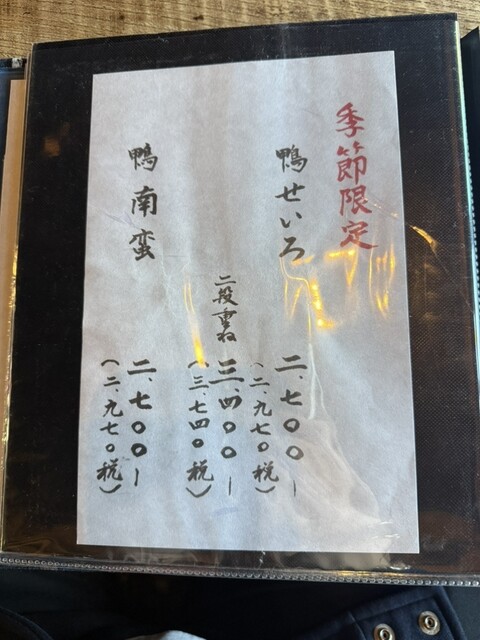 季節限定
鴨せいろ 二、七〇〇-
(二、九七〇税)
二段重ね 三、四〇〇-
(三、七四〇税)
鴨南蛮 二、七〇〇-
(二、九七〇税)